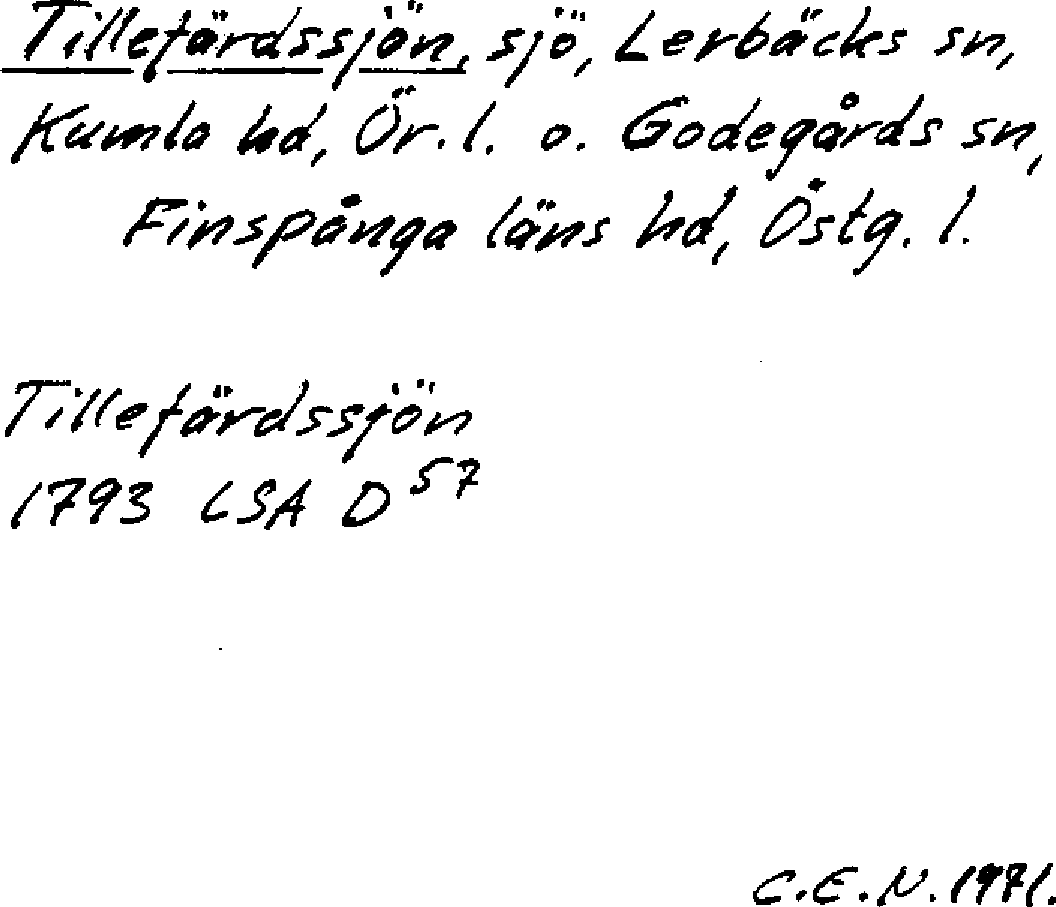 Tillefärdssjön, sjö, Lerbäcks sn,
Kumla hd, Ör. l. o. Godegårds sn,
Finspånga läns hd, Östg. l.
Tillefärdssjön
1793 LSA D 57
C.E.N. 1971.